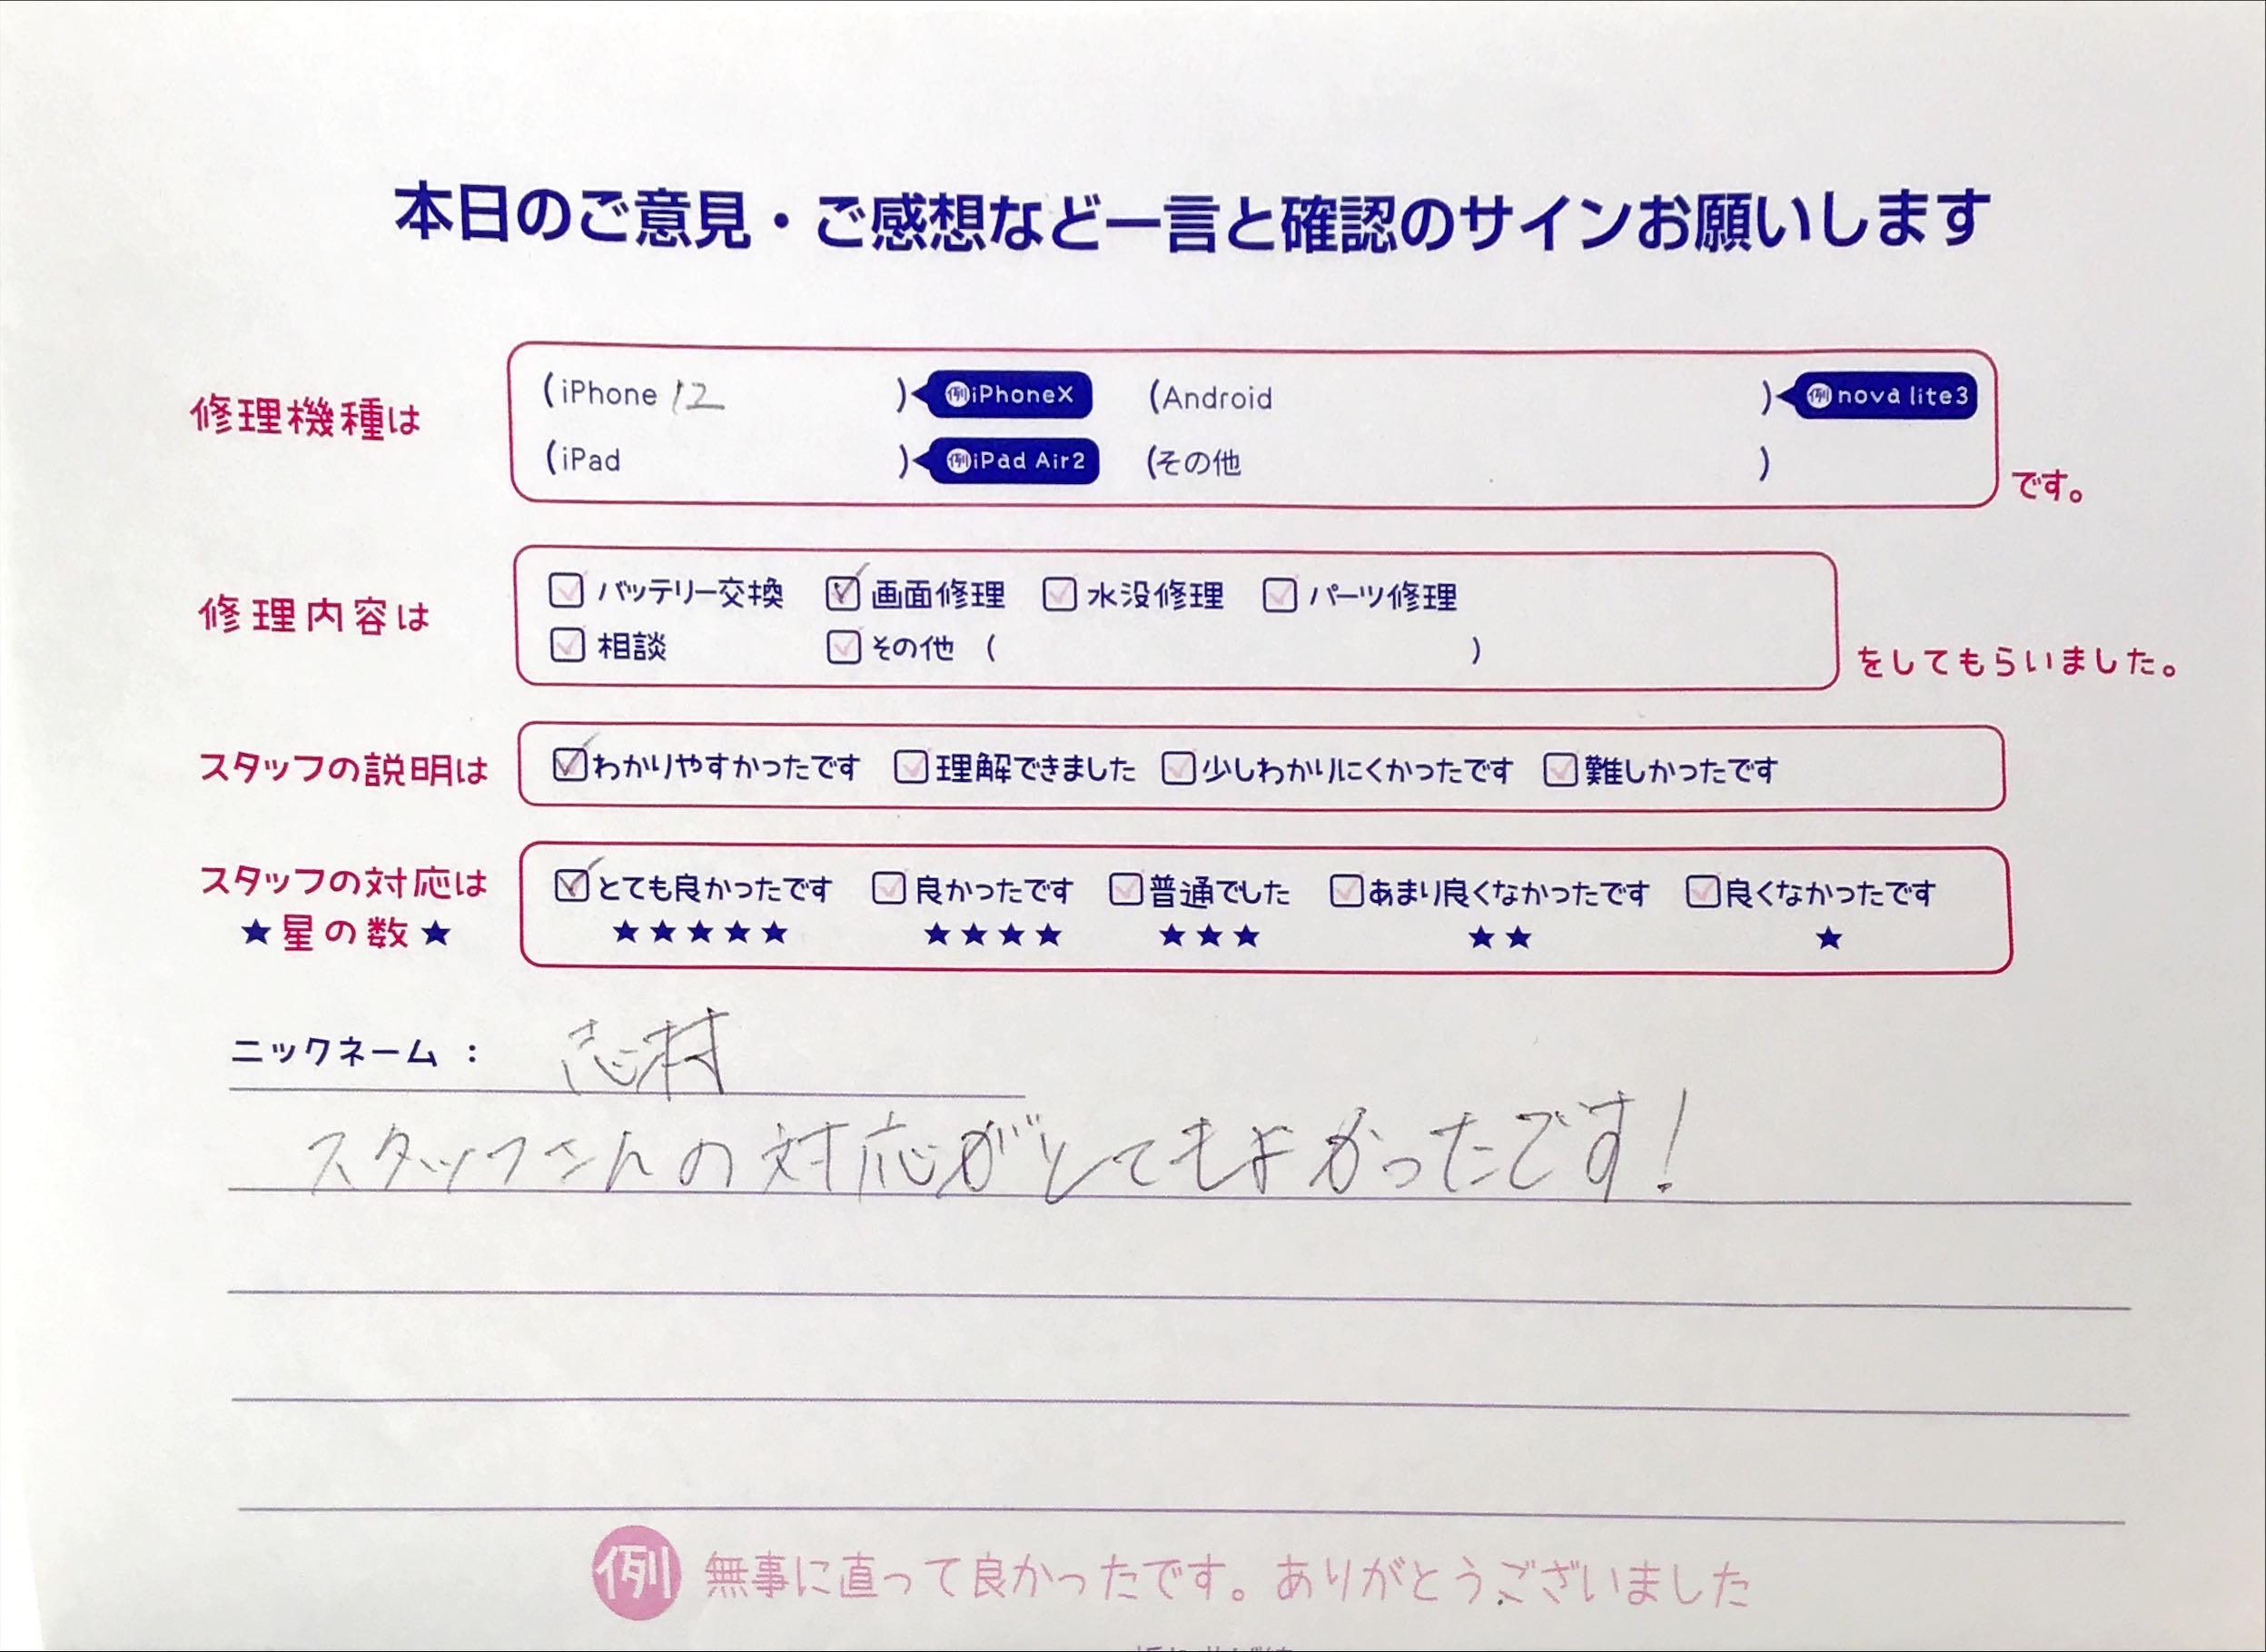 本日のご意見・ご感想など一言と確認のサインお願いします
修理機種は
(iPhone 12 ) 例iPhoneX (Android ) 例nova lite3
(iPad ) 例iPad Air2 (その他 )
です。
修理内容は
バッテリー交換 画面修理 水没修理 パーツ修理
相談 その他 ( )
をしてもらいました。
スタッフの説明は
わかりやすかったです 理解できました 少しわかりにくかったです 難しかったです
スタッフの対応は
★星の数★
とても良かったです 良かったです 普通でした あまり良くなかったです 良くなかったです
★★★★★ ★★★★ ★★★ ★★ ★
ニックネーム : 志村
スタッフさんの対応がとてもよかったです!
例 無事に直って良かったです。ありがとうございました